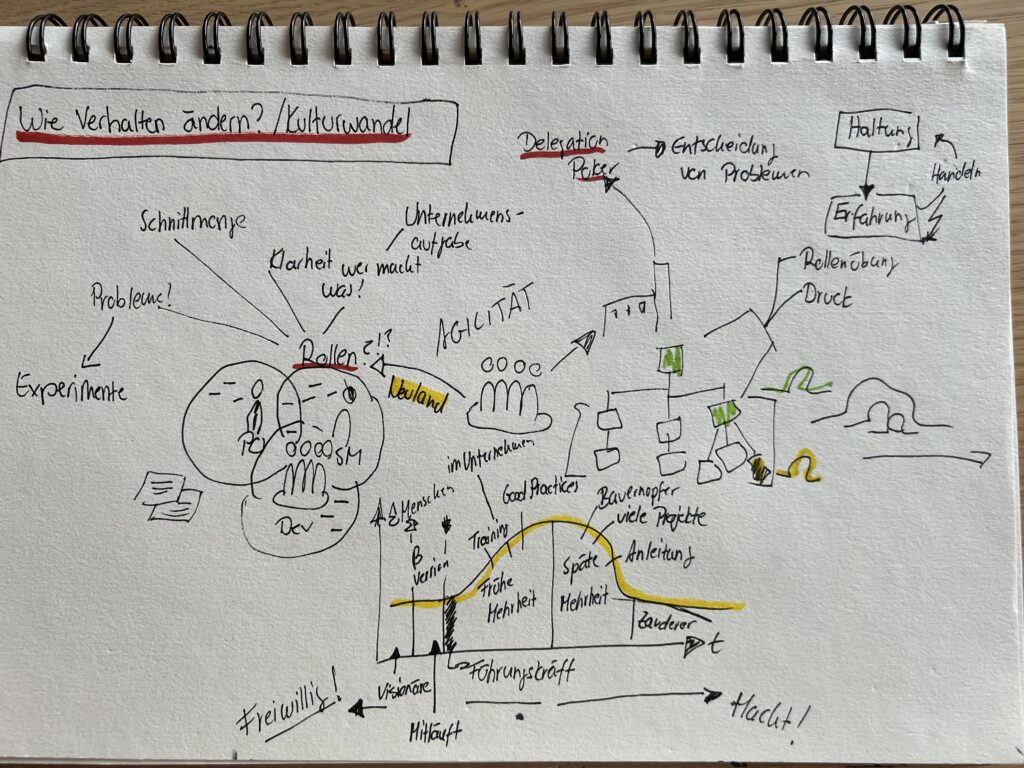 Wie Verhalten ändern? / Kulturwandel
Delegation
Poker
Entscheidung
von Problemen
Haltung
Handeln
Erfahrung
Schnittmenge
Unternehmens-
aufgabe
Klarheit wer macht
was!
Probleme!
Experimente
Rollen?!?
AGILITÄT
Neuland
Rollenübung
Druck
PO
SM
Dev
im Unternehmen
Good Practices
Training
Menschen
β
Version
Bauernopfer
viele Projekte
Anleitung
Frühe
Mehrheit
Späte
Mehrheit
Zauderer
t
Führungskräft
Visionäre
Mitläuft
Freiwillig!
Macht!